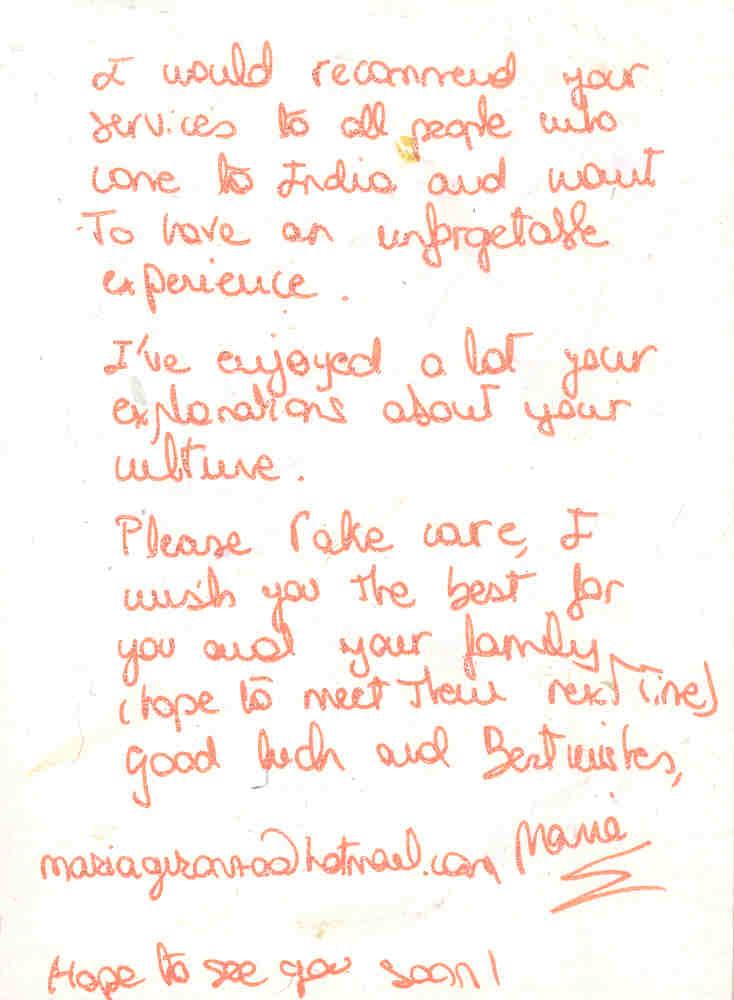 I would recommend your
services to all people who
come to India and want
To have an unforgetable
experience.
I've enjoyed a lot your
explanations about your
culture.
Please Take care, I
wish you the best for
you and your family
(hope to meet them next time)
good luck and Best wishes,
Maria
Hope to see you soon!